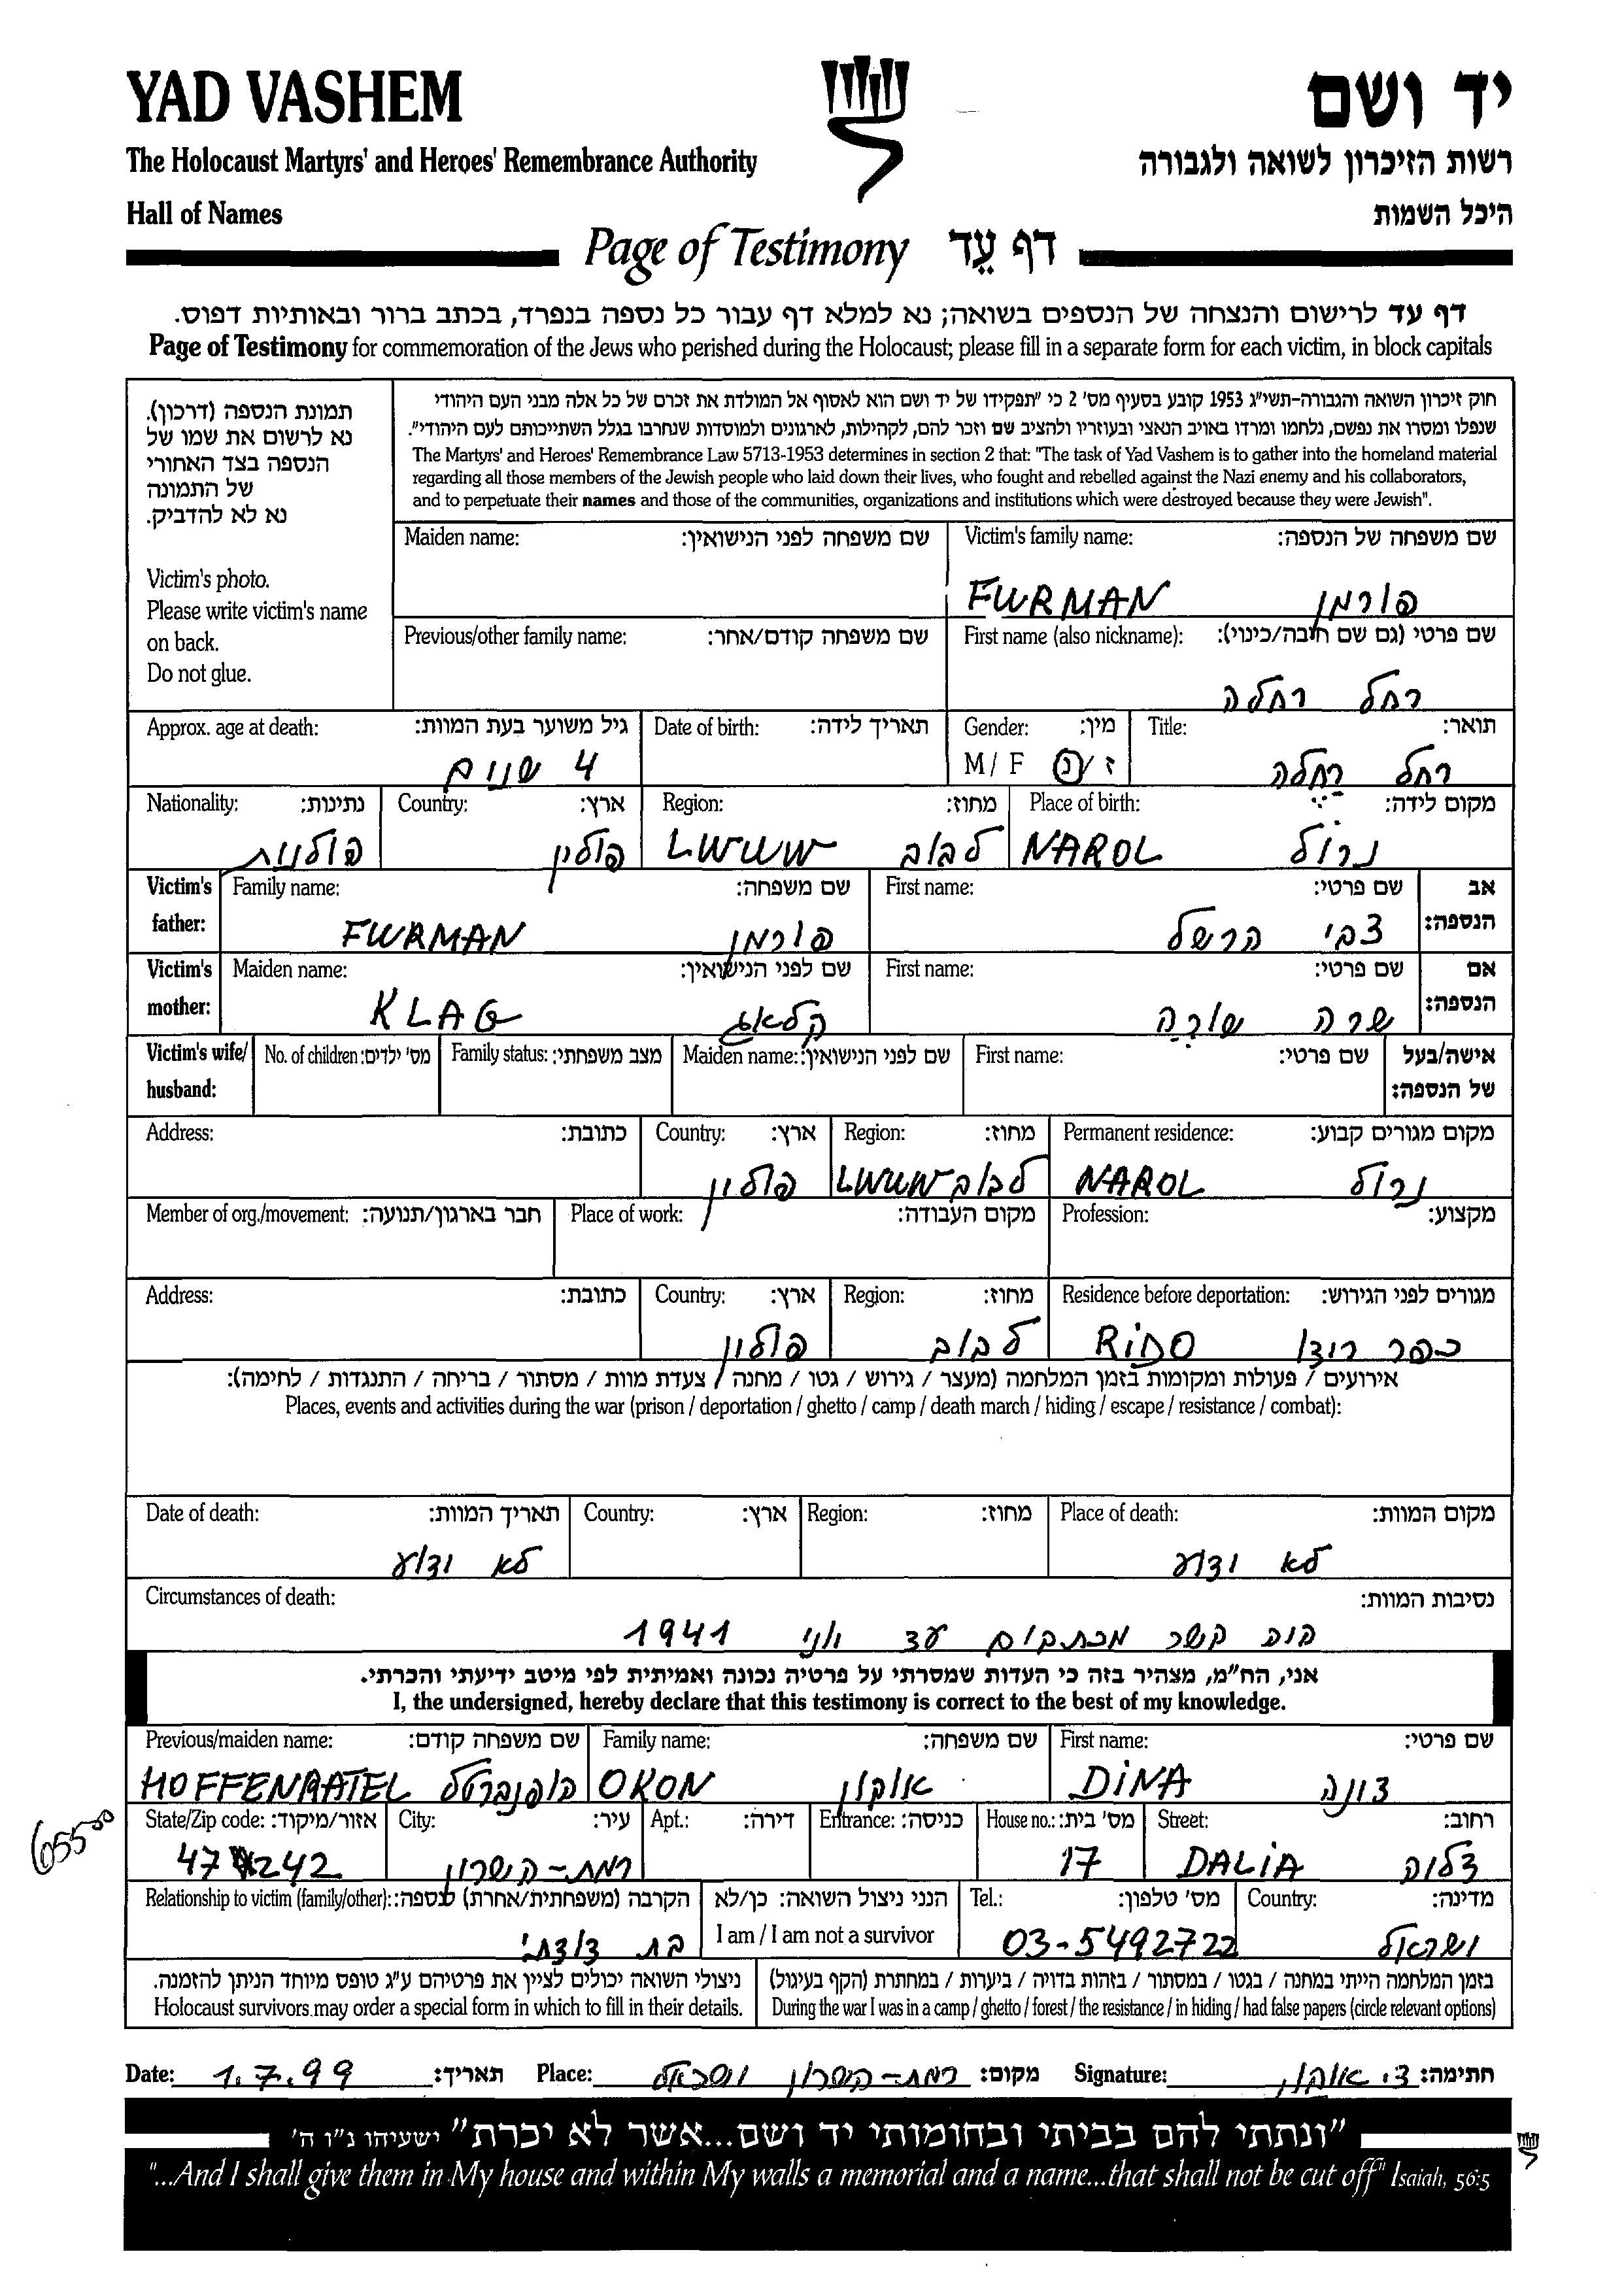 YAD VASHEM
יד ושם
The Holocaust Martyrs' and Heroes' Remembrance Authority
רשות הזיכרון לשואה ולגבורה
Hall of Names
היכל השמות
Page of Testimony דף עֵד
דף עד לרישום והנצחה של הנספים בשואה; נא למלא דף עבור כל נספה בנפרד, בכתב ברור ובאותיות דפוס.
Page of Testimony for commemoration of the Jews who perished during the Holocaust; please fill in a separate form for each victim, in block capitals
תמונת הנספה (דרכון).
נא לרשום את שמו של
הנספה בצד האחורי
של התמונה
נא לא להדביק.
Victim's photo.
Please write victim's name
on back.
Do not glue.
חוק זיכרון השואה והגבורה-תשי"ג 1953 קובע בסעיף מס' 2 כי "תפקידו של יד ושם הוא לאסוף אל המולדת את זכרם של כל אלה מבני העם היהודי
שנפלו ומסרו את נפשם, נלחמו ומרדו באויב הנאצי ובעוזריו ולהציב שם וזכר להם, לקהילות, לארגונים ולמוסדות שנחרבו בגלל השתייכותם לעם היהודי".
The Martyrs' and Heroes' Remembrance Law 5713-1953 determines in section 2 that: "The task of Yad Vashem is to gather into the homeland material
regarding all those members of the Jewish people who laid down their lives, who fought and rebelled against the Nazi enemy and his collaborators,
and to perpetuate their names and those of the communities, organizations and institutions which were destroyed because they were Jewish".
Maiden name: שם משפחה לפני הנישואין: Victim's family name: שם משפחה של הנספה:
FURMAN פורמן
Previous/other family name: שם משפחה קודם/אחר: First name (also nickname): שם פרטי (גם שם חיבה/כינוי):
רחל רחלה
Approx. age at death: גיל משוער בעת המוות: Date of birth: תאריך לידה: Gender: מין: Title: תואר:
4 שנים M / F ז / נ רחל רחלה
Nationality: נתינות: Country: ארץ: Region: מחוז: Place of birth: מקום לידה:
פולנית פולין LWUW לבוב NAROL נרול
Victim's father: Family name: שם משפחה: First name: שם פרטי: אב הנספה:
FURMAN פורמן צבי הרשל
Victim's mother: Maiden name: שם לפני הנישואין: First name: שם פרטי: אם הנספה:
KLAG קלאג שרה שורה
Victim's wife/ husband: No. of children: מס' ילדים: Family status: מצב משפחתי: Maiden name: שם לפני הנישואין: First name: שם פרטי: אישה/בעל של הנספה:
Address: כתובת: Country: ארץ: Region: מחוז: Permanent residence: מקום מגורים קבוע:
פולין LWUW לבוב NAROL נרול
Member of org./movement: חבר בארגון/תנועה: Place of work: מקום העבודה: Profession: מקצוע:
Address: כתובת: Country: ארץ: Region: מחוז: Residence before deportation: מגורים לפני הגירוש:
פולין לבוב RiDO כפר רידו
אירועים / פעולות ומקומות בזמן המלחמה (מעצר / גירוש / גטו / מחנה / צעדת מוות / מסתור / בריחה / התנגדות / לחימה):
Places, events and activities during the war (prison / deportation / ghetto / camp / death march / hiding / escape / resistance / combat):
Date of death: תאריך המוות: Country: ארץ: Region: מחוז: Place of death: מקום המוות:
לא ידוע לא ידוע
Circumstances of death: נסיבות המוות:
היה קשר מכתבים עד יוני 1941
אני, הח"מ, מצהיר בזה כי העדות שמסרתי על פרטיה נכונה ואמיתית לפי מיטב ידיעתי והכרתי.
I, the undersigned, hereby declare that this testimony is correct to the best of my knowledge.
Previous/maiden name: שם משפחה קודם: Family name: שם משפחה: First name: שם פרטי:
HOFFENRATEL OKON אוקון DiNA דינה
State/Zip code: אזור/מיקוד: City: עיר: Apt.: דירה: Entrance: כניסה: House no.: מס' בית: Street: רחוב:
47 242 רמת-השרון 17 DALiA דליה
Relationship to victim (family/other): הקרבה (משפחתית/אחרת) לנספה: הנני ניצול השואה: כן/לא Tel.: מס' טלפון: Country: מדינה:
I am / I am not a survivor
בת דודתי 03-5492722 ישראל
ניצולי השואה יכולים לציין את פרטיהם ע"ג טופס מיוחד הניתן להזמנה.
Holocaust survivors may order a special form in which to fill in their details.
בזמן המלחמה הייתי במחנה / בגטו / במסתור / בזהות בדויה / ביערות / במחתרת (הקף בעיגול)
During the war I was in a camp / ghetto / forest / the resistance / in hiding / had false papers (circle relevant options)
Date: 1.7.99 תאריך: Place: רמת-השרון ישראל מקום: Signature: ד. אוקון חתימה:
"ונתתי להם בביתי ובחומותי יד ושם...אשר לא יכרת" ישעיהו נ"ו ה'
"...And I shall give them in My house and within My walls a memorial and a name...that shall not be cut off" Isaiah, 56:5